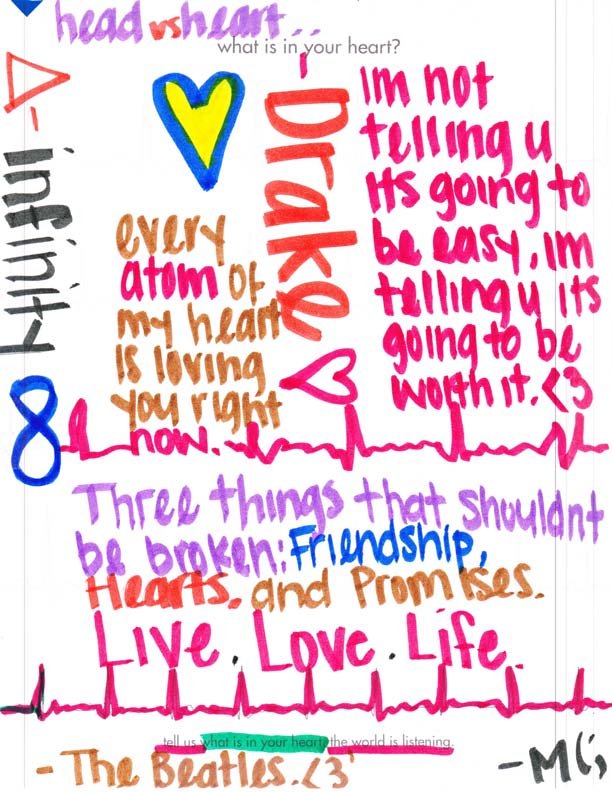 head vs heart...
what is in your heart?
Δ- infinity
8
Drake
Im not
telling u
its going to
be easy, im
telling u its
going to be
worth it. <3
every
atom of
my heart
is loving
you right
now.
Three things that shouldnt
be broken: Friendship,
Hearts, and Promises.
Live. Love. Life.
tell us what is in your heart, the world is listening.
- The Beatles. <3